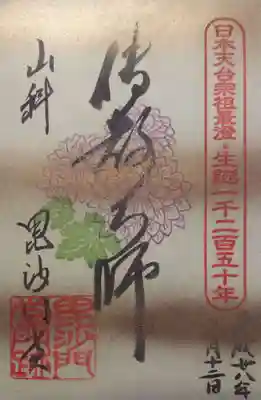 日本天台宗祖最澄・生誕一千二百五十年
成廿八年
月十二日
傳教大師
山科
毘沙門堂
毘沙門
堂門跡